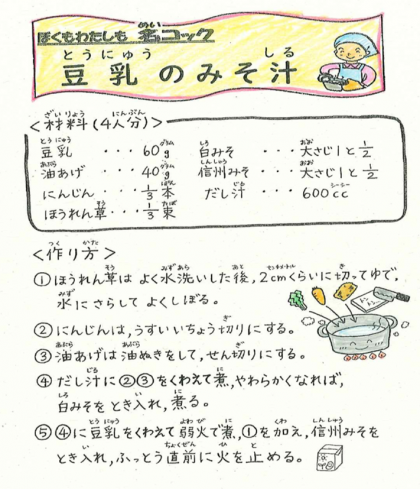 ぼくもわたしも 名コック
豆乳 の みそ 汁
<材料(4人分)>
豆乳 ・・・ 60g 白みそ ・・・ 大さじ1と1/2
油あげ ・・・ 40g 信州みそ ・・・ 大さじ1と1/2
にんじん ・・・ 1/3本 だし汁 ・・・ 600cc
ほうれん草 ・・・ 1/3束
<作り方>
①ほうれん草は よく水洗いした後, 2cmくらいに切ってゆで,
水にさらして よくしぼる。
②にんじんは,うすいいちょう切りにする。
③油あげは 油ぬきをして,せん切りにする。
④だし汁に②③をくわえて煮,やわらかくなれば,
白みそをとき入れ,煮る。
⑤④に豆乳をくわえて 弱火で煮,①を加え,信州みそを
とき入れ,ふっとう直前に火を止める。